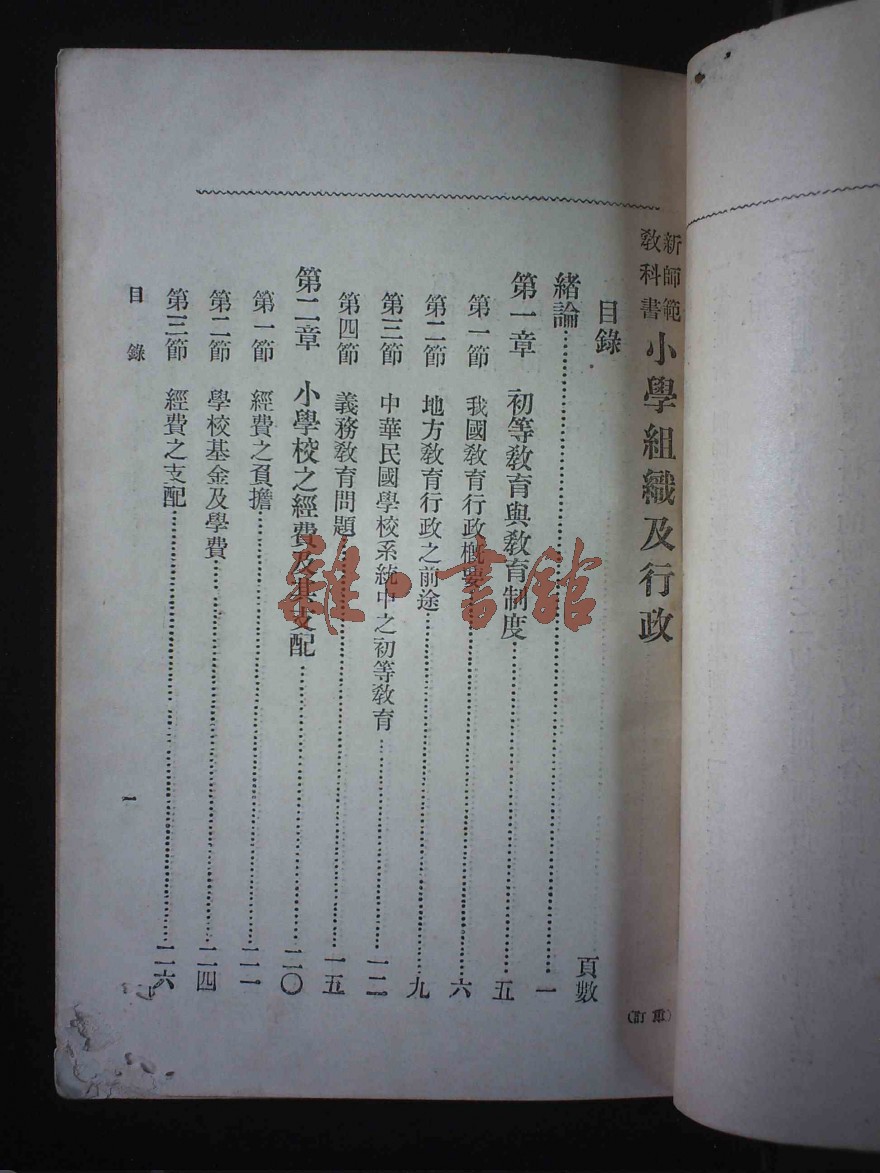 新師範教科書 小學組織及行政 (重訂)
目錄 頁數
緒論……一
第一章 初等教育與教育制度……五
第一節 我國教育行政概要……六
第二節 地方教育行政之前途……九
第三節 中華民國學校系統中之初等教育……一二
第四節 義務教育問題……一五
第二章 小學校之經費及其支配……二〇
第一節 經費之負擔……二一
第二節 學校基金及學費……二四
第三節 經費之支配……二六
目錄 一
雜·書館